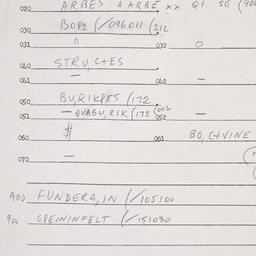 020 ARBES A ARBE xx Q1 5G (90
030 BOP2 (/096011 (212
031 0 032 0
040 STRU, C+ES
041 — 042 —
050 BU, RIKPES (172
051 — QUABU, RIK (172 (002 052 —
060 $ 061 BO, C+VINE
070 —
900 FUNDERA, IN (/105100
900 GREININFELT (/151030